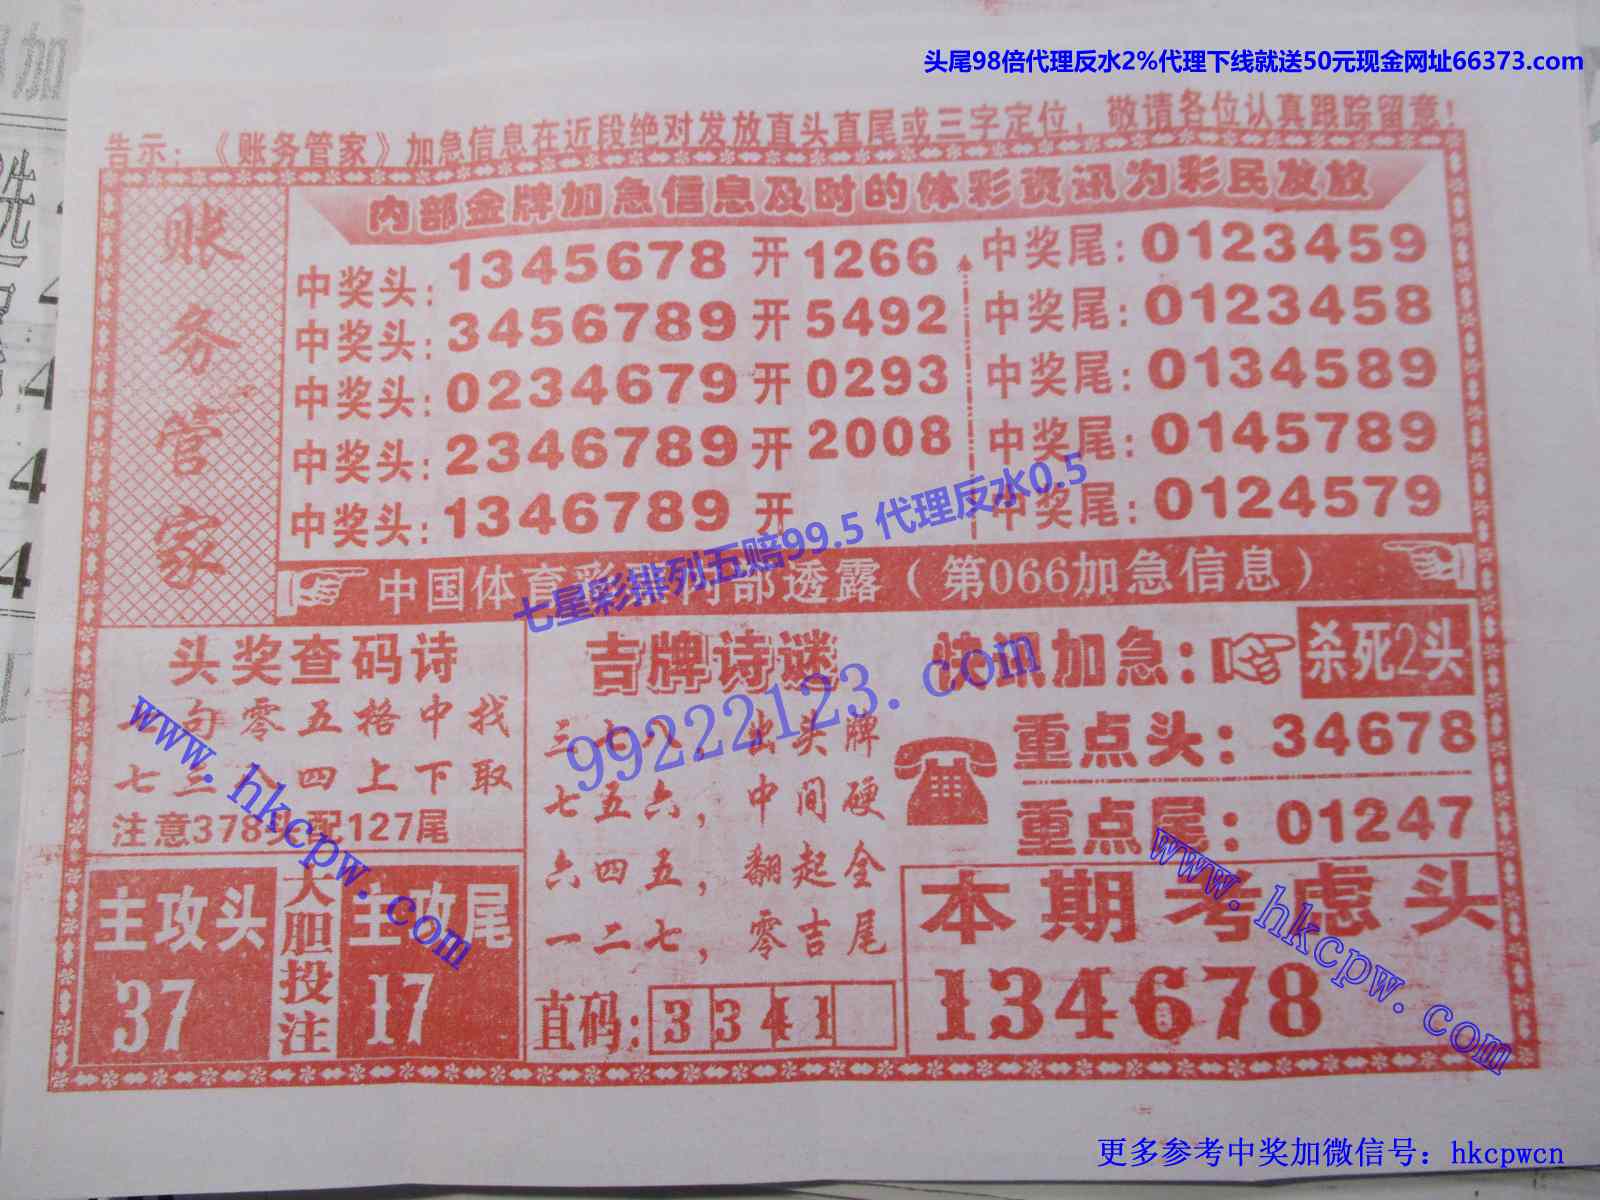 头尾98倍代理反水2%代理下线就送50元现金网址66373.com
告示：《账务管家》加急信息在近段绝对发放直头直尾或三字定位，敬请各位认真跟踪留意！
账务管家
内部金牌加急信息及时的体彩资讯为彩民发放
中奖头：1345678 开 1266 中奖尾：0123459
中奖头：3456789 开 5492 中奖尾：0123458
中奖头：0234679 开 0293 中奖尾：0134589
中奖头：2346789 开 2008 中奖尾：0145789
中奖头：1346789 开 中奖尾：0124579
七星彩排列五赔99.5 代理反水0.5
中国体育彩 内部透露（第066加急信息）
头奖查码诗
句零五格中找
七三 四上下取
注意378头配127尾
主攻头
37
大胆投注
主攻尾
17
吉牌诗谜
三七八，出头牌
七五六，中间硬
六四五，翻起全
一二七，零吉尾
直码：3 3 4 1
快讯加急：杀死2头
重点头：34678
重点尾：01247
本期考虑头
134678
99222123.com
www.hkcpw.com
www.hkcpw.com
更多参考中奖加微信号：hkcpwcn